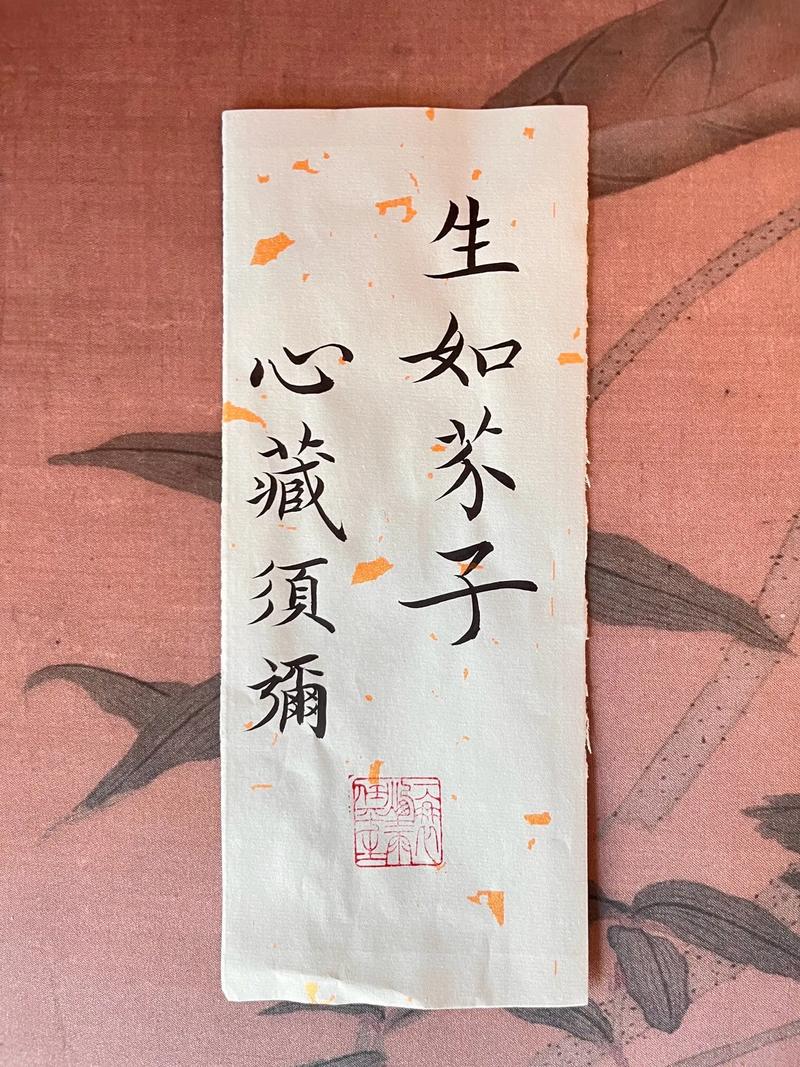 生如芥子
心藏須彌